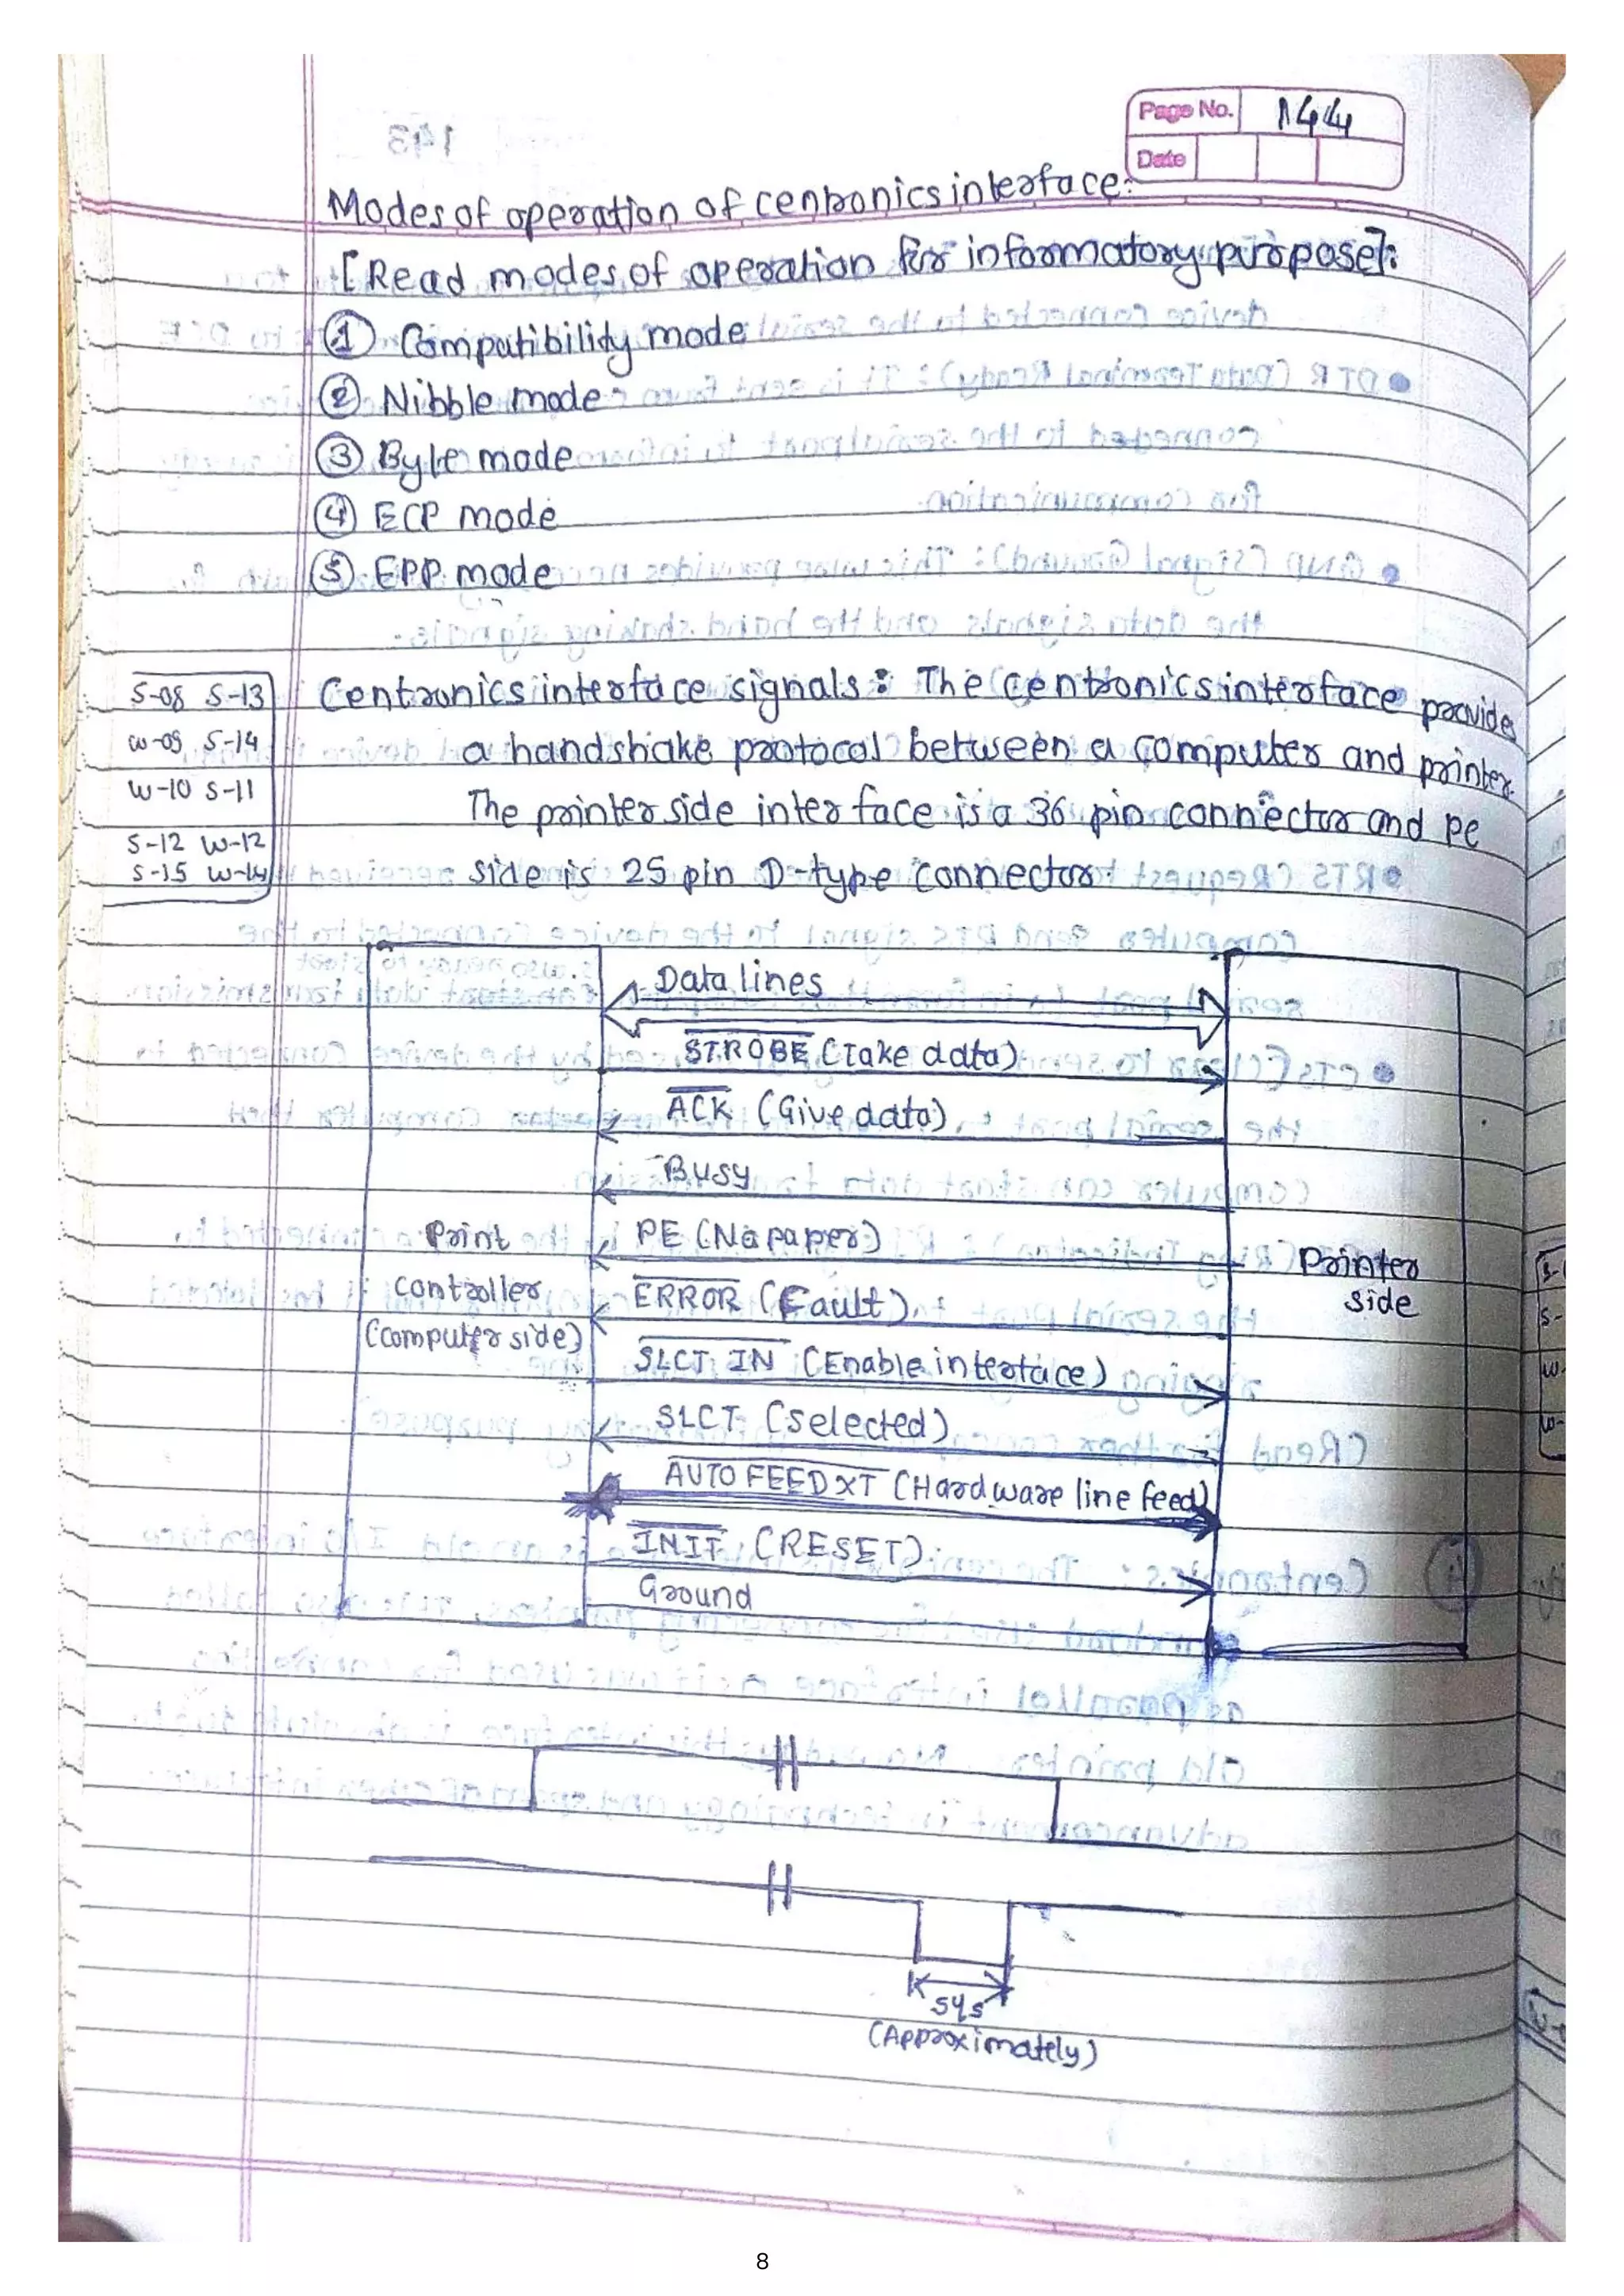 Page No. 144
Date
143
Modes of operation of centronics interface:
[Read modes of operation for informatory purpose]:
① Compatibility mode
② Nibble mode
③ Byte mode
④ ECP mode
⑤ EPP mode
S-08 S-13
W-09 S-14
W-10 S-11
S-12 W-12
S-15 W-14
Centronics interface signals: The centronics interface provides
a handshake protocol between a computer and printer.
The printer side interface is a 36 pin connector and pc
side is 25 pin D-type connector.
Data lines
STROBE (Take data)
ACK (Give data)
Busy
PE (No paper)
ERROR (Fault)
SLCT IN (Enable interface)
SLCT (selected)
AUTO FEED XT (Hardware line feed)
INIT (RESET)
Ground
Print
controller
(computer side)
Printer
side
5μs
(Approximately)
8